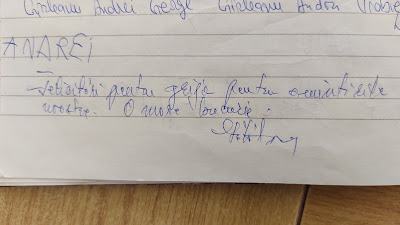 Cîrleanu Andrei George Cîrleanu Andrei
ANAREI
Felicitări pentru grija pentru amintirile
noastre. O mare bucurie.